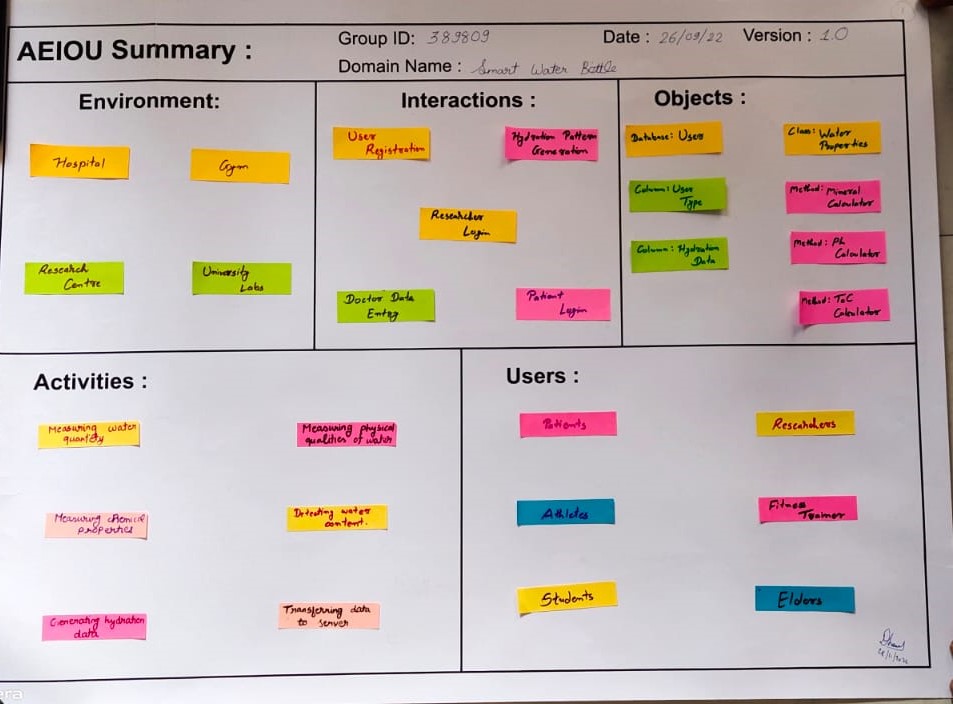 AEIOU Summary :
Group ID: 389809
Date : 26/09/22
Version : 1.0
Domain Name : Smart Water Bottle
Environment:
Hospital
Gym
Research
Centre
University
Labs
Interactions :
User
Registration
Hydration Pattern
Generation
Researcher
Login
Doctor Data
Entry
Patient
Login
Objects :
Database: User
Class: Water
Properties
Column: User
Type
Method: Mineral
Calculator
Column: Hydration
Data
Method: Ph
Calculator
Method: ToC
Calculator
Activities :
Measuring water
quantity
Measuring physical
qualities of water
Measuring chemical
properties
Detecting water
content.
Generating hydration
data
Transferring data
to server
Users :
Patients
Researchers
Athletes
Fitness
Trainer
Students
Elders